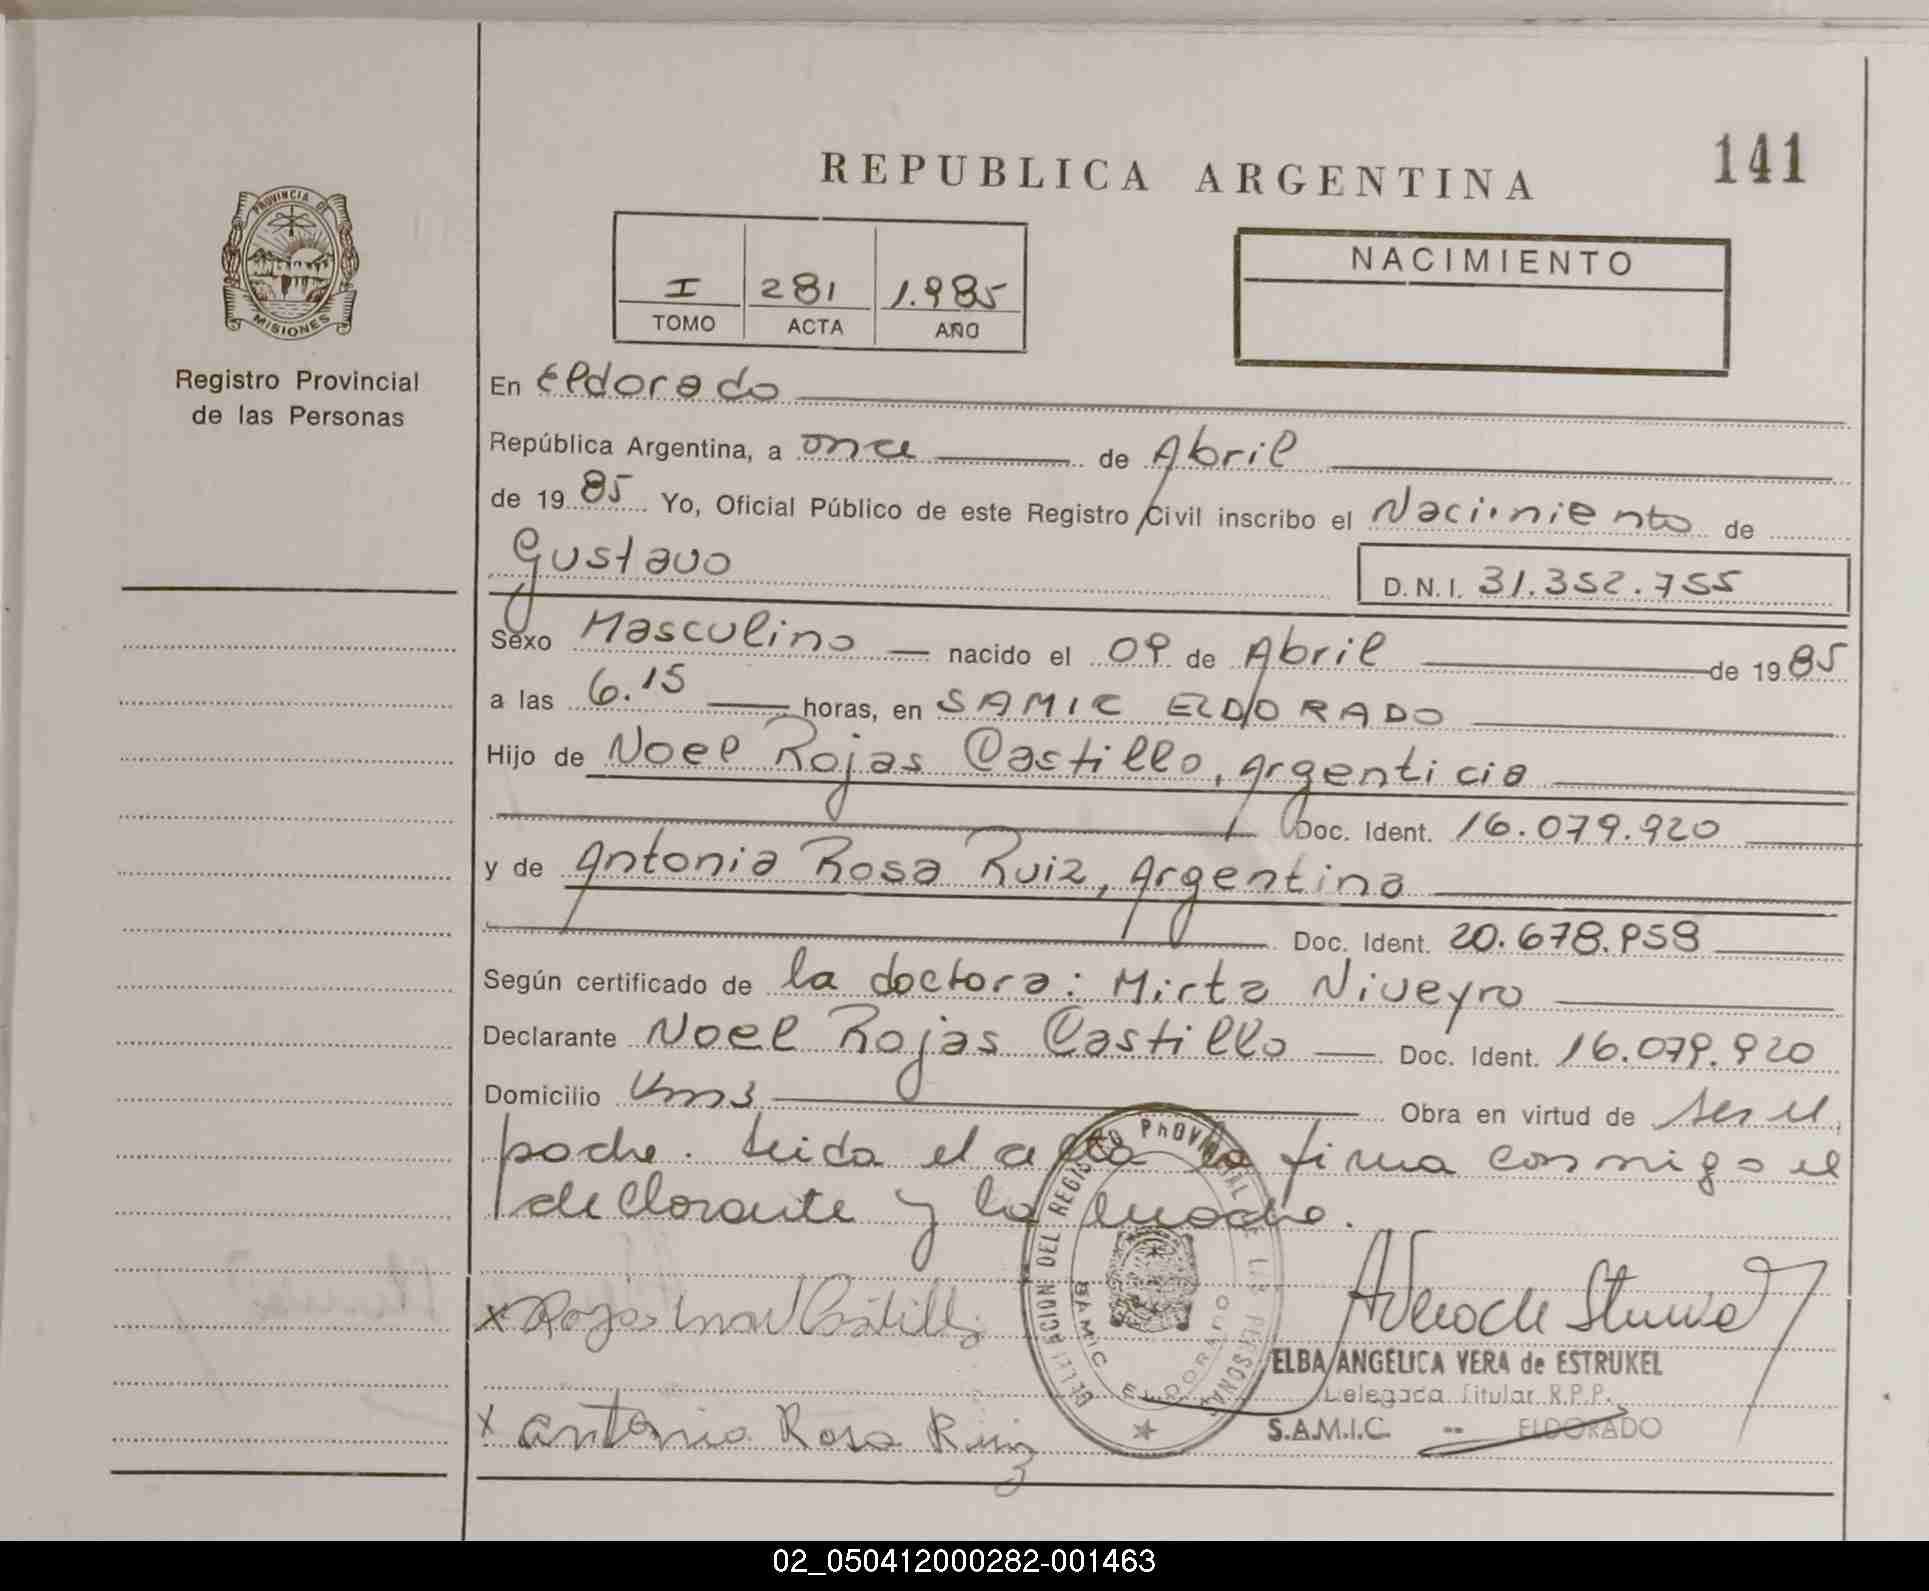 REPUBLICA ARGENTINA
141
PROVINCIA DE
MISIONES
Registro Provincial
de las Personas
I 281 1.985
TOMO ACTA AÑO
NACIMIENTO
En Eldorado
República Argentina, a once de Abril
de 1985 Yo, Oficial Público de este Registro Civil inscribo el Nacimiento de
Gustavo
D.N.I. 31.352.755
Sexo Masculino nacido el 09 de Abril de 1985
a las 6.15 horas, en SAMIC ELDORADO
Hijo de Noel Rojas Castillo, Argenticia
Doc. Ident. 16.079.920
y de Antonia Rosa Ruiz, Argentina
Doc. Ident. 20.678.958
Según certificado de la doctora: Mirta Niveyro
Declarante Noel Rojas Castillo Doc. Ident. 16.079.920
Domicilio Km3 Obra en virtud de ser el
padre. Leida el acta la firma conmigo el
declarante y la madre.
DELEGACION DEL REGISTRO PROVINCIAL DE LAS PERSONAS
SAMIC ELDORADO
x Rojas Noel Castillo
ELBA ANGELICA VERA de ESTRUKEL
Delegada Titular R.P.P.
S.A.M.I.C. -- ELDORADO
x Antonia Rosa Ruiz
02_050412000282-001463